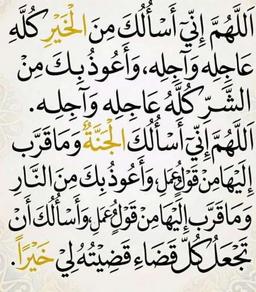 اللَّهُمَّ إِنِّي أَسْأَلُكَ مِنَ الْخَيْرِ كُلِّهِ
عَاجِلِهِ وَآجِلِهِ، وَأَعُوذُ بِكَ مِنَ
الشَّرِّ كُلِّهِ عَاجِلِهِ وَآجِلِهِ.
اللَّهُمَّ إِنِّي أَسْأَلُكَ الْجَنَّةَ وَمَا قَرَّبَ
إِلَيْهَا مِنْ قَوْلٍ وَعَمَلٍ، وَأَعُوذُ بِكَ مِنَ النَّارِ
وَمَا قَرَّبَ إِلَيْهَا مِنْ قَوْلٍ وَعَمَلٍ، وَأَسْأَلُكَ أَنْ
تَجْعَلَ كُلَّ قَضَاءٍ قَضَيْتَهُ لِي خَيْرًا.